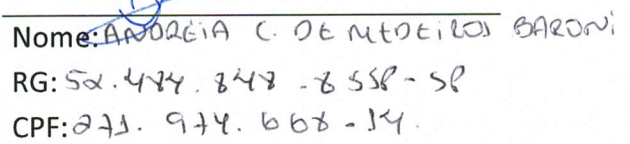 Nome: ANDREIA C. DE MEDEIROS BARONI
RG: 52.484.848-8 SSP-SP
CPF: 271.974.668-14.